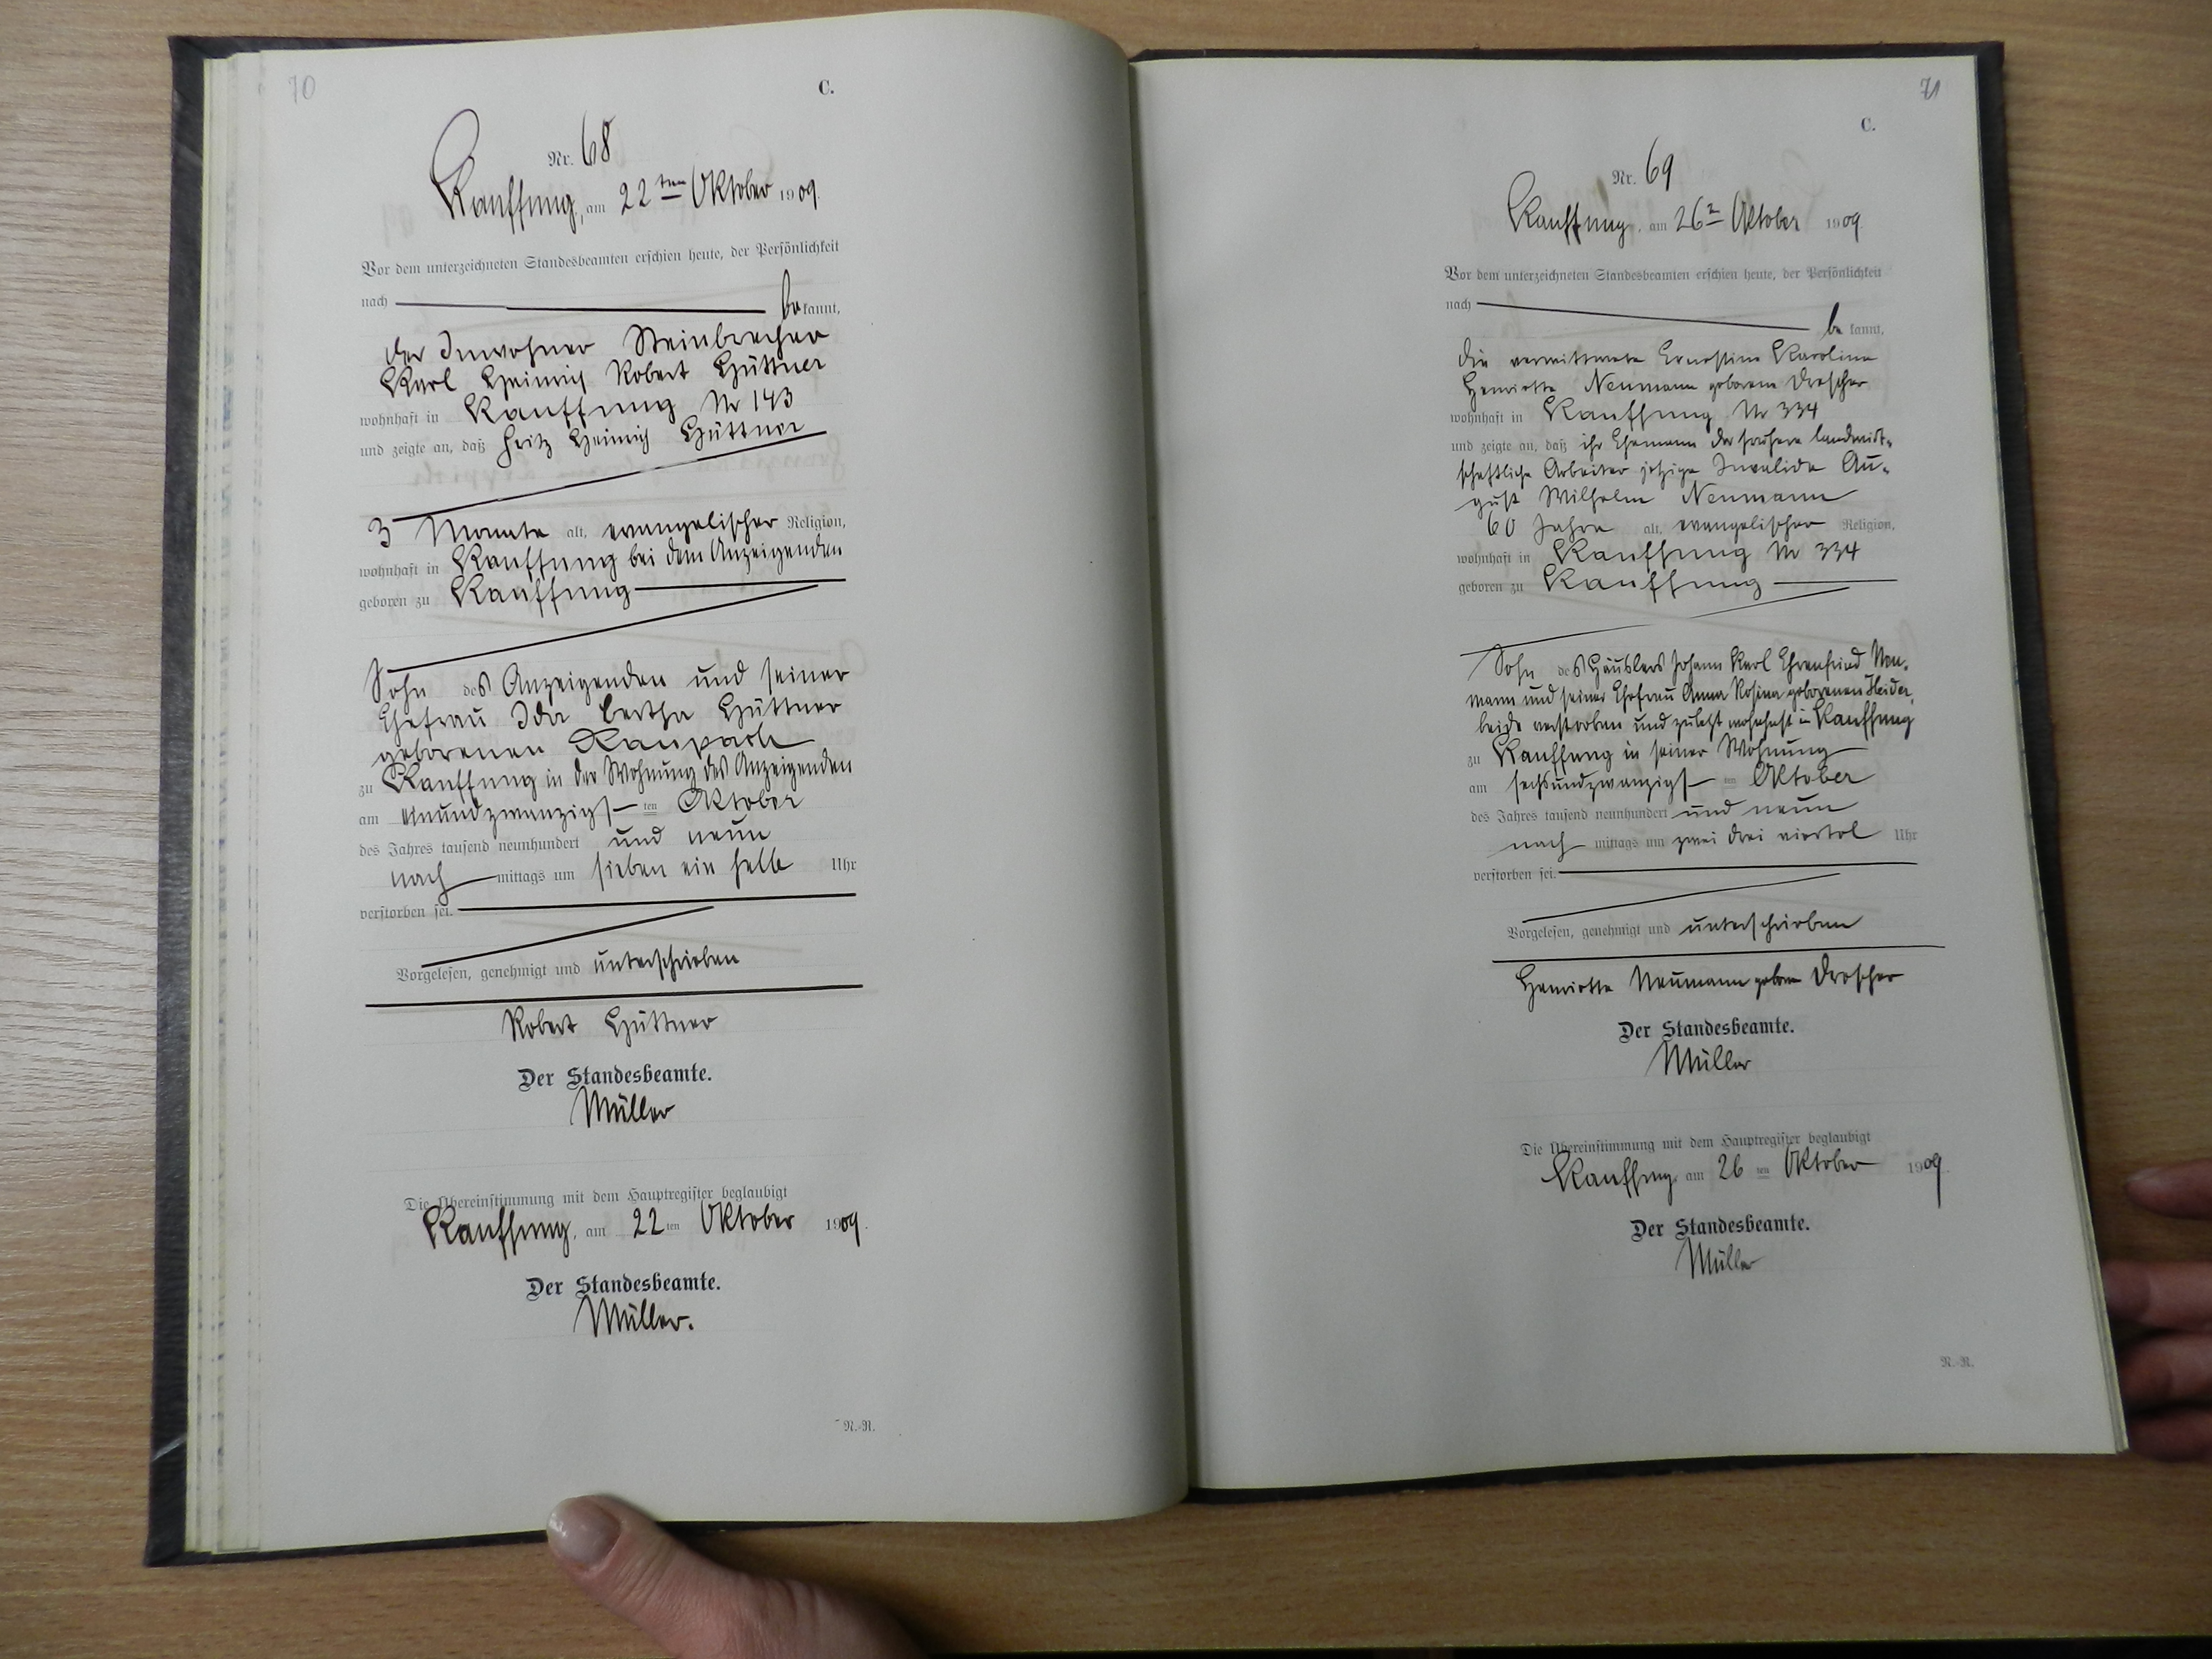 70
C.
Nr. 68
Kauffung, am 22ten Oktober 1909.
Vor dem unterzeichneten Standesbeamten erschien heute, der Persönlichkeit
nach bekannt,
der Inwohner Steinbrecher
Karl Heinrich Robert Hüttner
wohnhaft in Kauffung Nr 143
und zeigte an, daß Fritz Heinrich Hüttner
3 Monate alt, evangelischer Religion,
wohnhaft in Kauffung bei dem Anzeigenden
geboren zu Kauffung
Sohn des Anzeigenden und seiner
Ehefrau Ida Bertha Hüttner
geborenen Raupach
zu Kauffung in der Wohnung des Anzeigenden
am einundzwanzigsten Oktober
des Jahres tausend neunhundert und neun
nach mittags um sieben ein halb Uhr
verstorben sei.
Vorgelesen, genehmigt und unterschrieben
Robert Hüttner
Der Standesbeamte.
Müller
Die Übereinstimmung mit dem Hauptregister beglaubigt
Kauffung, am 22ten Oktober 1909.
Der Standesbeamte.
Müller.
N.-N.
71
C.
Nr. 69
Kauffung, am 26 Oktober 1909.
Vor dem unterzeichneten Standesbeamten erschien heute, der Persönlichkeit
nach bekannt,
die verwittwete Ernestine Karoline
Henriette Neumann geborene Drescher
wohnhaft in Kauffung Nr 334
und zeigte an, daß ihr Ehemann der frühere landwirt-
schaftliche Arbeiter jetzige Invalide Au-
gust Wilhelm Neumann
60 Jahre alt, evangelischer Religion,
wohnhaft in Kauffung Nr 334
geboren zu Kauffung
Sohn des Häuslers Johann Karl Ehrenfried Neu-
mann und seiner Ehefrau Anna Rosina geborenen Heider,
beide verstorben und zuletzt wohnhaft in Kauffung
zu Kauffung in seiner Wohnung
am sechsundzwanzigsten Oktober
des Jahres tausend neunhundert und neun
nach mittags um zwei drei viertel Uhr
verstorben sei.
Vorgelesen, genehmigt und unterschrieben
Henriette Neumann geborene Drescher
Der Standesbeamte.
Müller
Die Übereinstimmung mit dem Hauptregister beglaubigt
Kauffung, am 26ten Oktober 1909.
Der Standesbeamte.
Müller
N.-N.